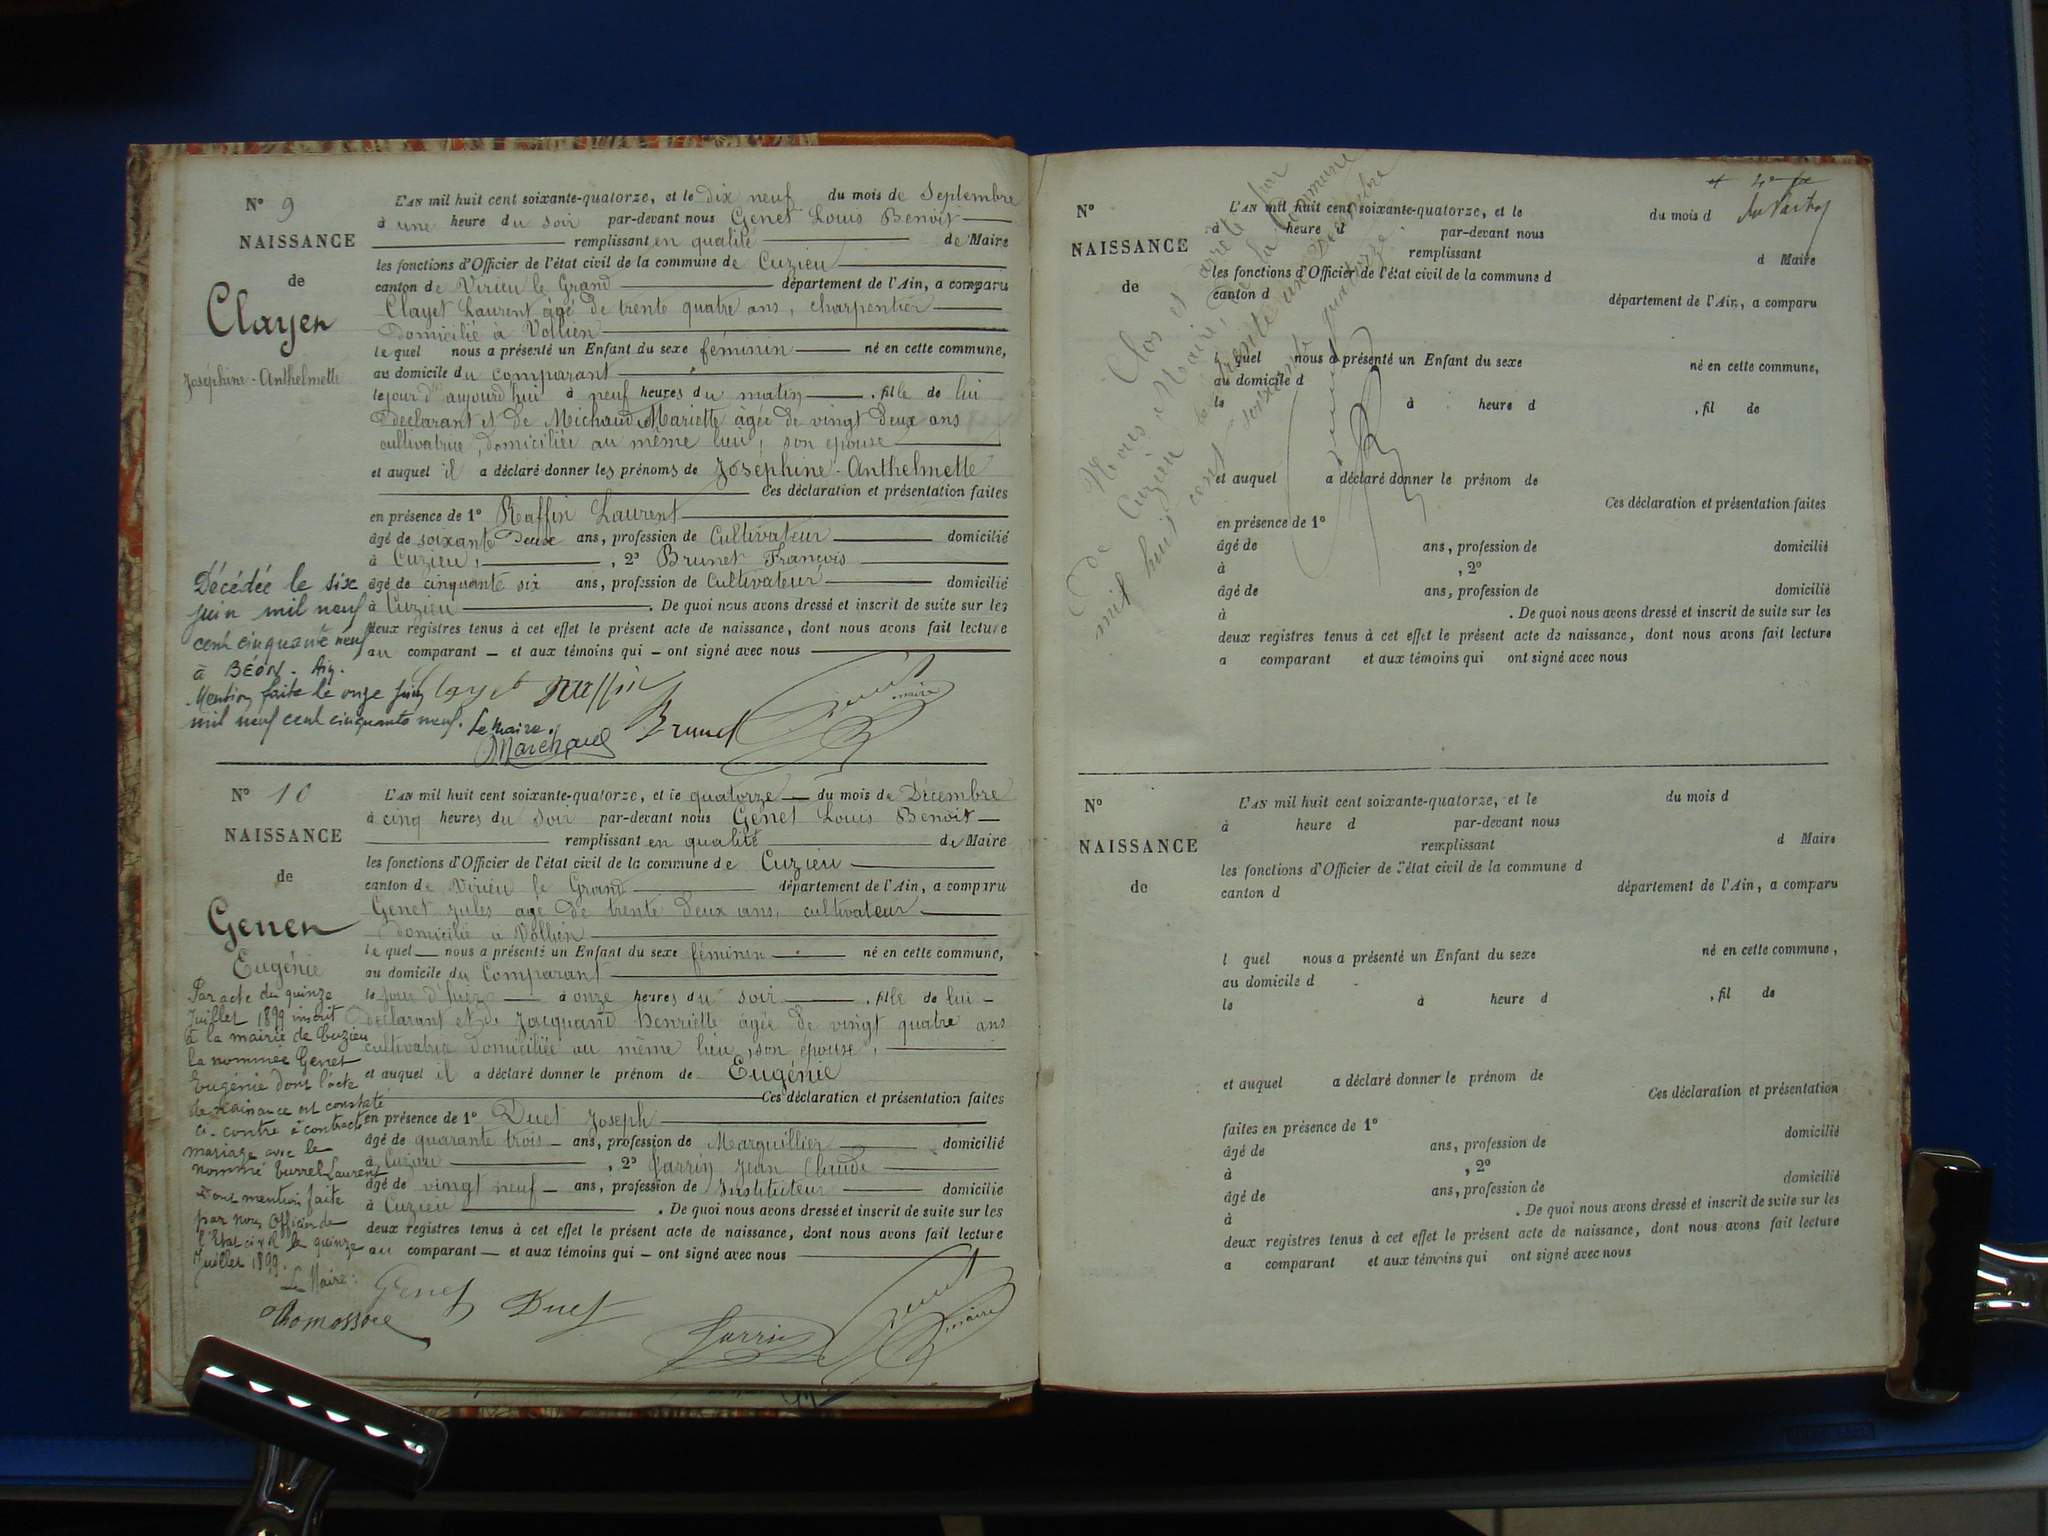 N° 9
NAISSANCE
de
Clayet
Joséphine-Anthelmette
L'AN mil huit cent soixante-quatorze, et le dix neuf du mois de Septembre
à une heure du soir par-devant nous Genet Louis Benoit
remplissant en qualité de Maire
les fonctions d'Officier de l'état civil de la commune de Cuzieu
canton de Virieu le Grand département de l'Ain, a comparu
Clayet Laurent âgé de trente quatre ans, charpentier
domicilié à Vollien
le quel nous a présenté un Enfant du sexe féminin né en cette commune,
au domicile du comparant
le jour d'aujourd'hui à neuf heures du matin, fille de lui
déclarant et de Michaud Mariette âgée de vingt deux ans
cultivatrice, domiciliée au même lieu, son épouse
et auquel il a déclaré donner les prénoms de Joséphine-Anthelmette
Ces déclaration et présentation faites
en présence de 1° Raffin Laurent
âgé de soixante deux ans, profession de Cultivateur domicilié
à Cuzieu, , 2° Brunet François
âgé de cinquante six ans, profession de Cultivateur domicilié
à Cuzieu . De quoi nous avons dressé et inscrit de suite sur les
deux registres tenus à cet effet le présent acte de naissance, dont nous avons fait lecture
au comparant — et aux témoins qui — ont signé avec nous
Décédée le six
juin mil neuf
cent cinquante neuf
à BÉON. Ain.
Mention faite le onze juin
mil neuf cent cinquante neuf.
Le Maire.
Marchand
Clayet Raffin
Brunet
Genet maire
N° 10
NAISSANCE
de
Genet
Eugénie
L'AN mil huit cent soixante-quatorze, et le quatorze du mois de Décembre
à cinq heures du soir par-devant nous Genet Louis Benoit
remplissant en qualité de Maire
les fonctions d'Officier de l'état civil de la commune de Cuzieu
canton de Virieu le Grand département de l'Ain, a comparu
Genet Jules âgé de trente deux ans, cultivateur
domicilié à Vollien
le quel nous a présenté un Enfant du sexe féminin né en cette commune,
au domicile du Comparant
le jour d'hier à onze heures du soir, fille de lui
déclarant et de Jacquand Henriette âgée de vingt quatre ans
cultivatrice domiciliée au même lieu, son épouse,
et auquel il a déclaré donner le prénom de Eugénie
Ces déclaration et présentation faites
en présence de 1° Duet Joseph
âgé de quarante trois ans, profession de Marguillier domicilié
à Cuzieu , 2° Jean Claude
âgé de vingt neuf ans, profession de Instituteur domicilié
à Cuzieu . De quoi nous avons dressé et inscrit de suite sur les
deux registres tenus à cet effet le présent acte de naissance, dont nous avons fait lecture
au comparant — et aux témoins qui — ont signé avec nous
Par acte du quinze
Juillet 1899 inscrit
à la mairie de Cuzieu
la nommée Genet
Eugénie dont l'acte
de naissance est constaté
ci-contre a contracté
mariage avec le
nommé Burrel Laurent
Dont mention faite
par nous Officier de
l'Etat civil le quinze
Juillet 1899.
Le Maire:
Genet Duet
Genet maire
N°
NAISSANCE
de
L'AN mil huit cent soixante-quatorze, et le du mois d
à heure d par-devant nous
remplissant d Maire
les fonctions d'Officier de l'état civil de la commune d
canton d département de l'Ain, a comparu
l quel nous a présenté un Enfant du sexe né en cette commune,
au domicile d
le à heure d , fil de
et auquel a déclaré donner le prénom de
Ces déclaration et présentation faites
en présence de 1°
âgé de ans, profession de domicilié
à , 2°
âgé de ans, profession de domicilié
à . De quoi nous avons dressé et inscrit de suite sur les
deux registres tenus à cet effet le présent acte de naissance, dont nous avons fait lecture
a comparant et aux témoins qui ont signé avec nous
Clos et arrêté par
Nous Maire, de la Commune
de Cuzieu le trente un Décembre
mil huit cent soixante quatorze.
N°
NAISSANCE
de
L'AN mil huit cent soixante-quatorze, et le du mois d
à heure d par-devant nous
remplissant d Maire
les fonctions d'Officier de l'état civil de la commune d
canton d département de l'Ain, a comparu
l quel nous a présenté un Enfant du sexe né en cette commune,
au domicile d
le à heure d , fil de
et auquel a déclaré donner le prénom de
Ces déclaration et présentation
faites en présence de 1°
âgé de ans, profession de domicilié
à , 2°
âgé de ans, profession de domicilié
à . De quoi nous avons dressé et inscrit de suite sur les
deux registres tenus à cet effet le présent acte de naissance, dont nous avons fait lecture
a comparant et aux témoins qui ont signé avec nous